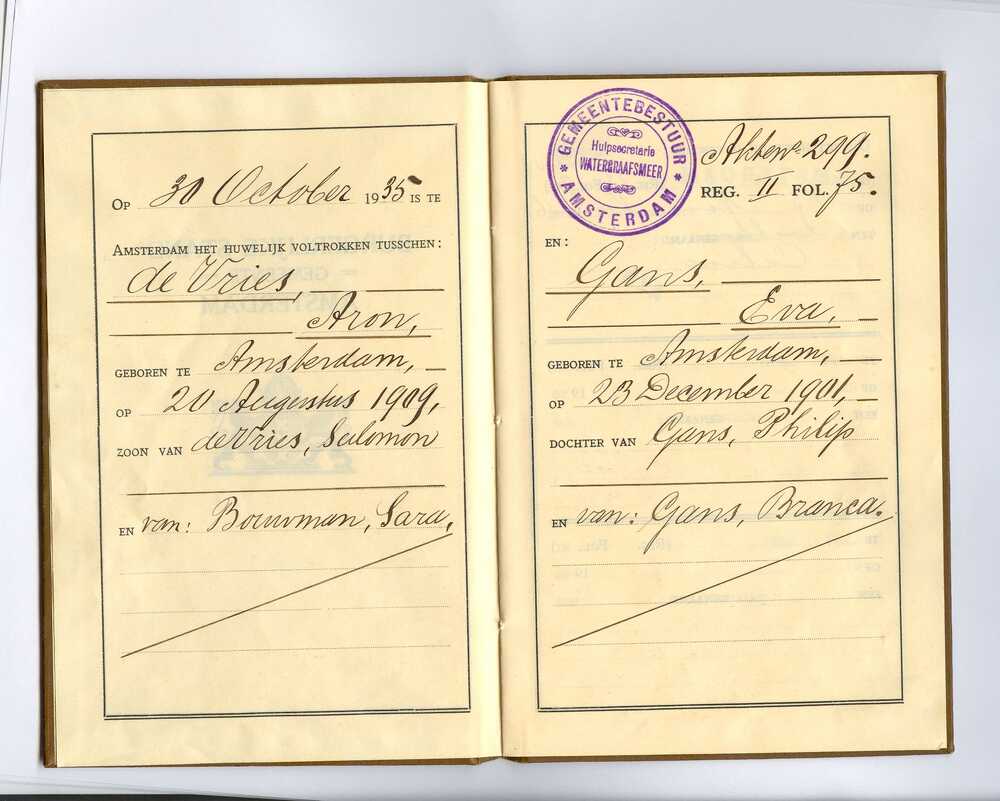 OP 30 October 1935 IS TE
AMSTERDAM HET HUWELIJK VOLTROKKEN TUSSCHEN:
de Vries,
Aron,
GEBOREN TE Amsterdam,
OP 20 Augustus 1909,
ZOON VAN de Vries, Salomon
EN van: Bouwman, Sara,
GEMEENTEBESTUUR
Hulpsecretarie
WATERGRAAFSMEER
* AMSTERDAM *
Akte nº 299.
REG. II FOL. 75.
EN:
Gans,
Eva,
GEBOREN TE Amsterdam,
OP 23 December 1901,
DOCHTER VAN Gans, Philip
EN van: Gans, Branca.